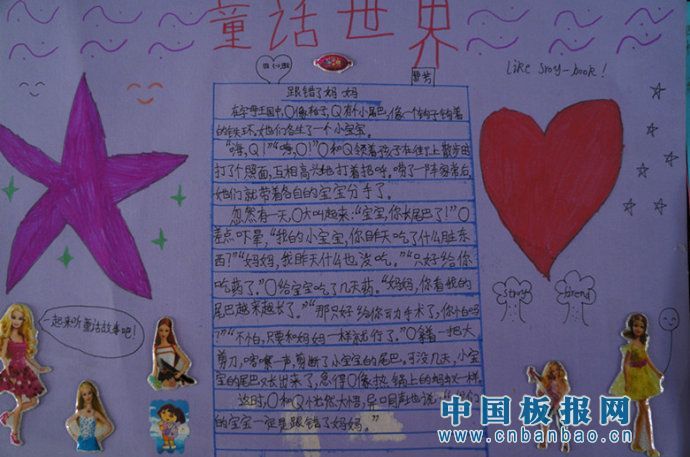 童话世界
Like srory-book!
跟错了妈妈
在字母王国中,O像粒子,Q有个小尾巴,像一个钩子钩着
的铁环,她们各生了一个小宝宝。
“嗨,Q!”“嗨,O!”O和Q领着孩子在街上散步时
打了个照面,互相高兴地打着招呼。唠了一阵家常后,
她们就带着各自的宝宝分手了。
忽然有一天,O大叫起来:“宝宝,你长尾巴了!”O
差点吓晕,“我的小宝宝,你昨天吃了什么脏东
西?”“妈妈,我昨天什么也没吃。”“只好给你
吃药了。”O给宝宝吃了几天药。“妈妈,你看我的
尾巴越来越长了。”“那只好给你动手术了,你怕吗
?”“不怕,只要和妈妈一样就行了。”O拿着一把大
剪刀,喀嚓一声,剪断了小宝宝的尾巴。可没几天,小宝
宝的尾巴又长出来了,急得O像热锅上的蚂蚁一样。
这时,O和Q才恍然大悟,异口同声地说:“
的宝宝一定是跟错了妈妈。”
一起来听童话故事吧!
Story
中国板报网
www.cnbanbao.cn